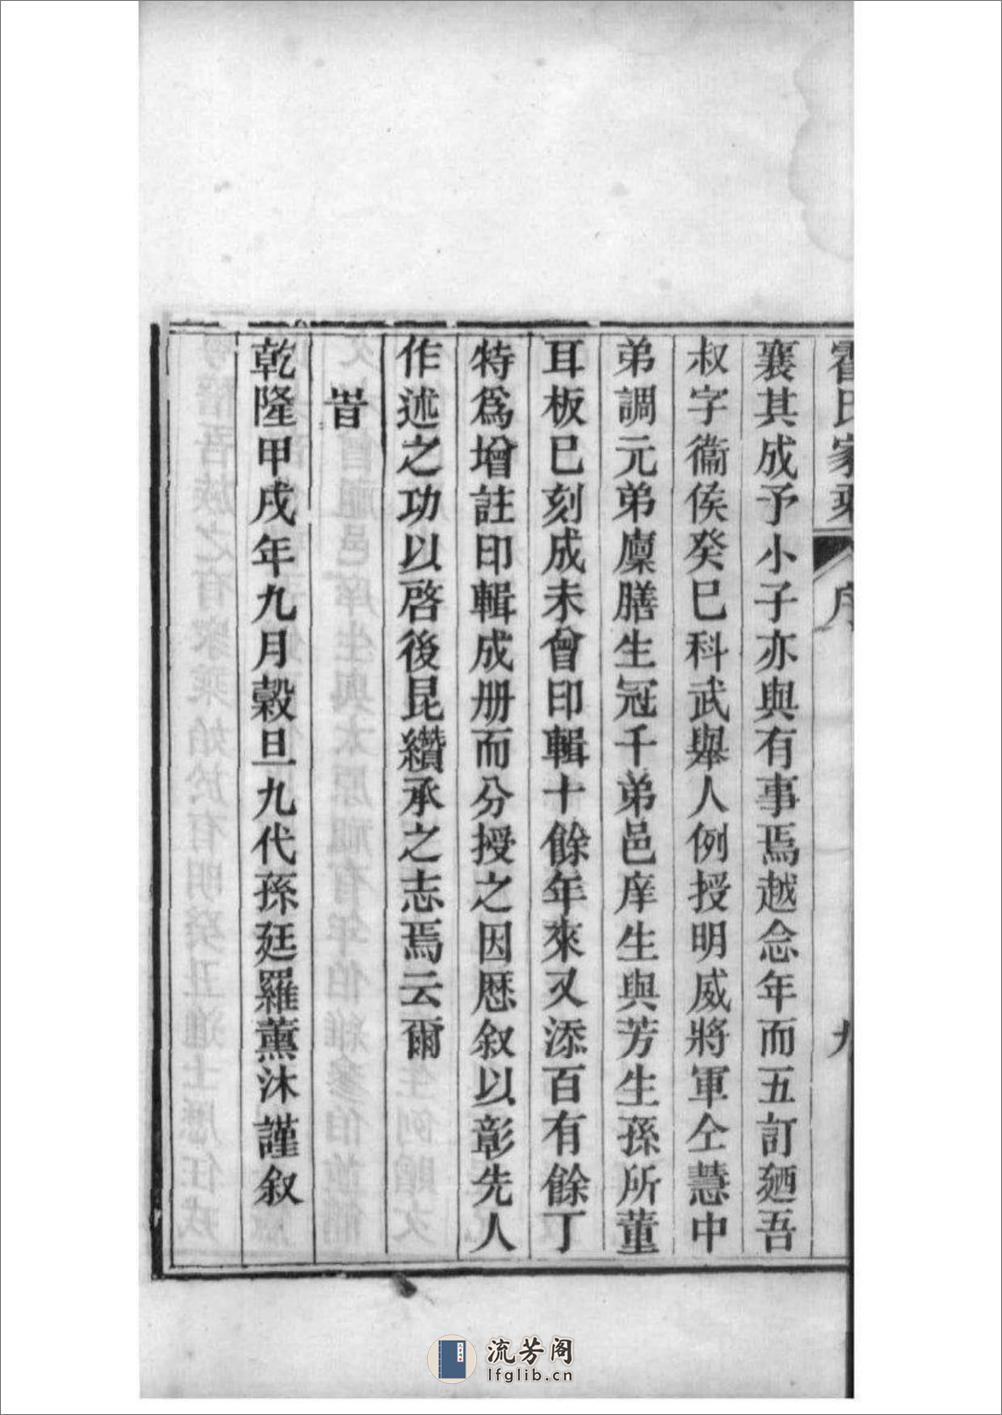 霍氏家乘 序 九
襄其成予小子亦與有事焉越念年而五訂廼吾
叔字衞侯癸巳科武舉人例授明威將軍仝慧中
弟調元弟廩膳生冠千弟邑庠生與芳生孫所董
耳板巳刻成未曾印輯十餘年來又添百有餘丁
特爲增註印輯成册而分授之因歴叙以彰先人
作述之功以啓後昆纘承之志焉云爾
旹
乾隆甲戌年九月穀旦九代孫廷羅薰沐謹叙
流芳阁
lfglib.cn